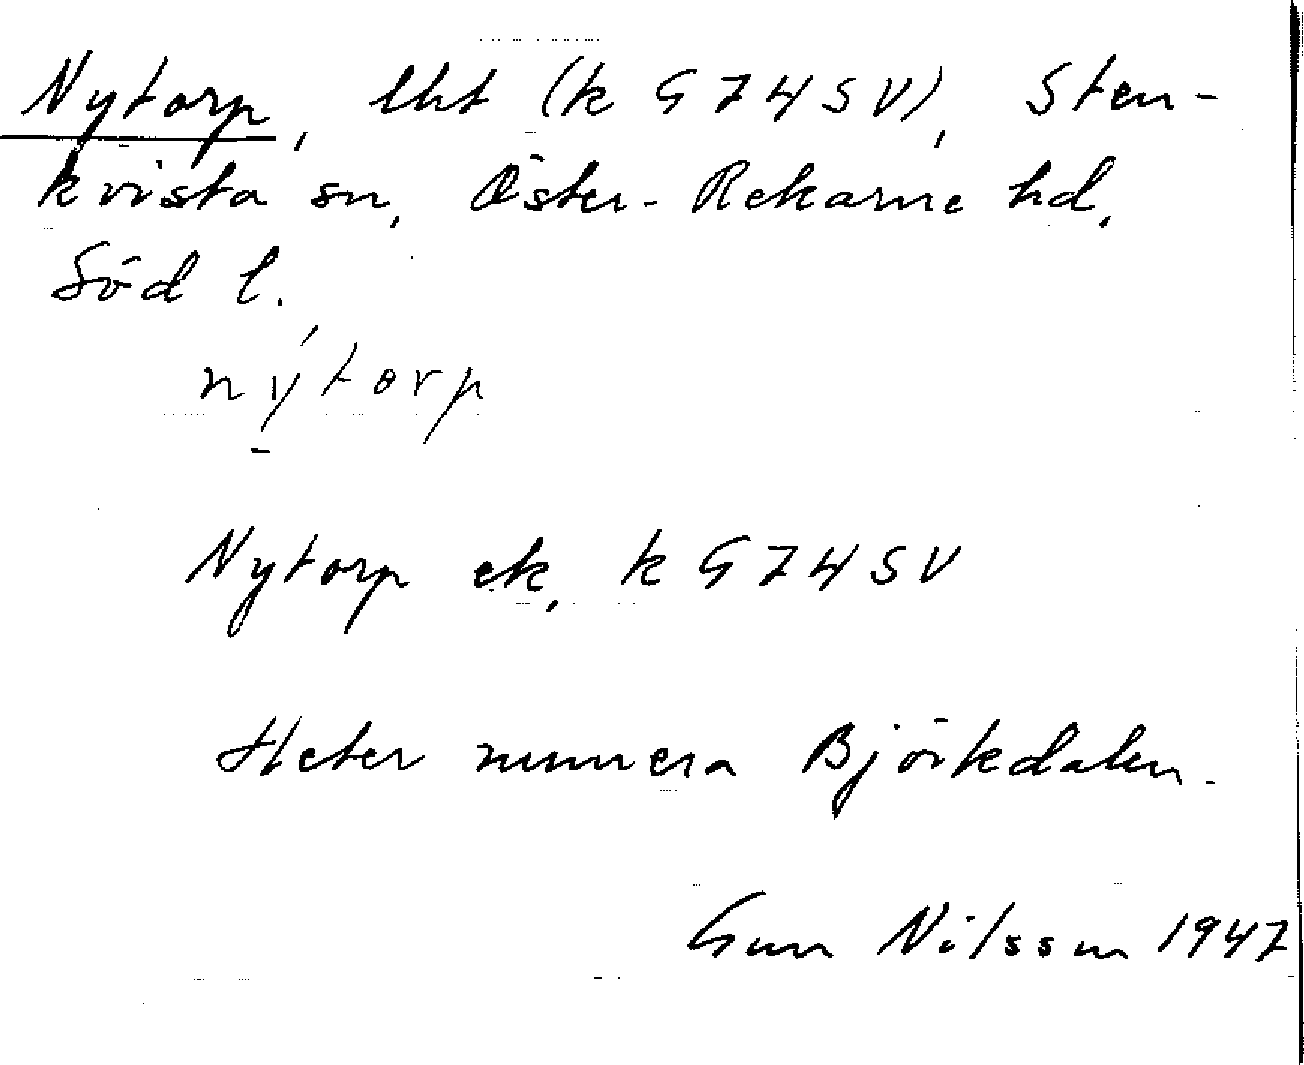 Nytorp, lht (k G74SV), Sten-
kvista sn, Öster-Rekarne hd,
Söd l.
nýtorp
Nytorp ek, k G74SV
Heter numera Björkdalen.
Gun Nilsson 1947